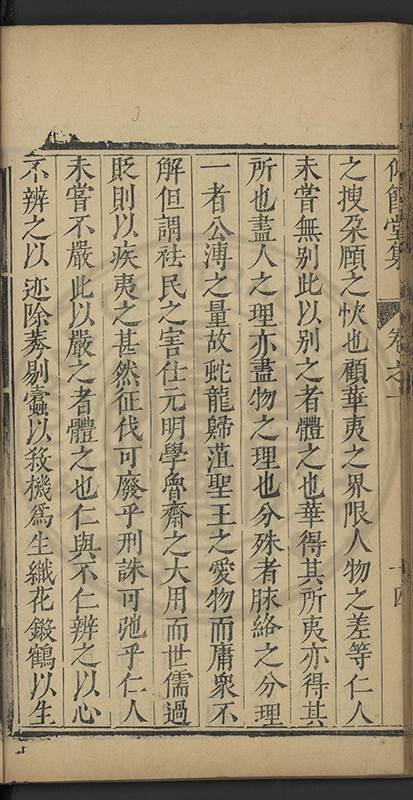 節堂集 卷之 十四
之搜朶頤之快也顧華夷之界限人物之差等仁人
未嘗無別此以別之者體之也華得其所夷亦得其
所也盡人之理亦盡物之理也分殊者脉絡之分理
一者公溥之量故蛇龍歸菹聖王之愛物而庸衆不
解但謂祛民之害仕元明學魯齋之大用而世儒過
貶則以疾夷之甚然征伐可廢乎刑誅可弛乎仁人
未嘗不嚴此以嚴之者體之也仁與不仁辨之以心
不辨之以迹除莠剔蠹以殺機爲生織花鍛鶴以生